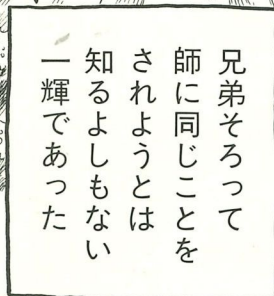 兄弟そろって
師に同じことを
されようとは
知るよしもない
一輝であった